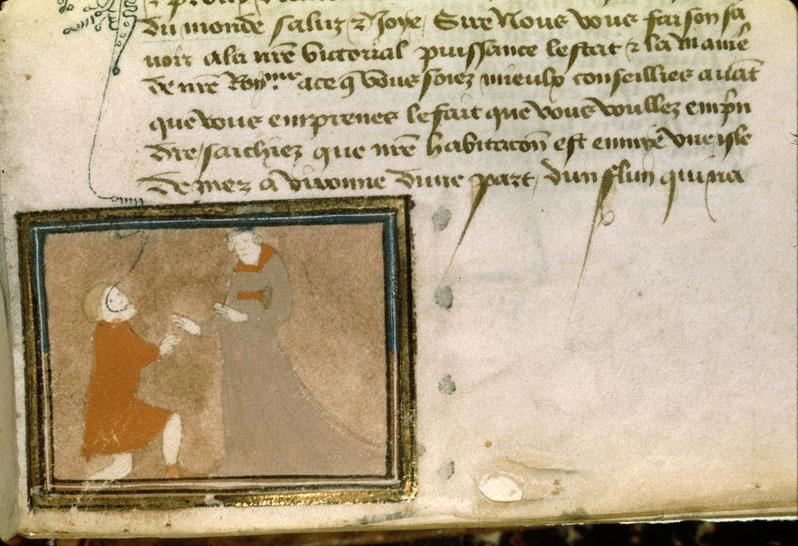 du monde salut & Joye, Sire Nous vous faison sa
uoir a la nre victorial puissance lestat & la manie
de nre Roy.me ace q vous soiez mieulx conseillies auāt
que vous emprenes le fait que vous voullez empn
dre, saichiez que nre habitacōn est emmy vne isle
de mez a vironne dune part, dun flun qui na